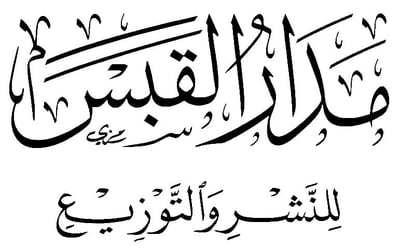 مَدَارُ القَبَس
لِلنَّشْرِ وَالتَّوْزِيعِ